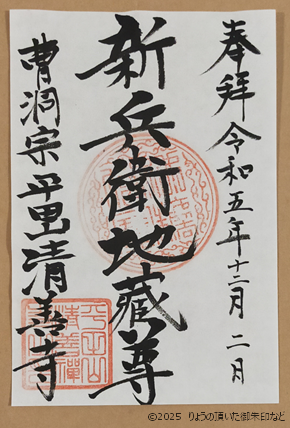 奉拝 令和五年十二月二日
新兵衛地藏尊
曹洞宗 平田清善寺
©2025 りょうの頂いた御朱印など